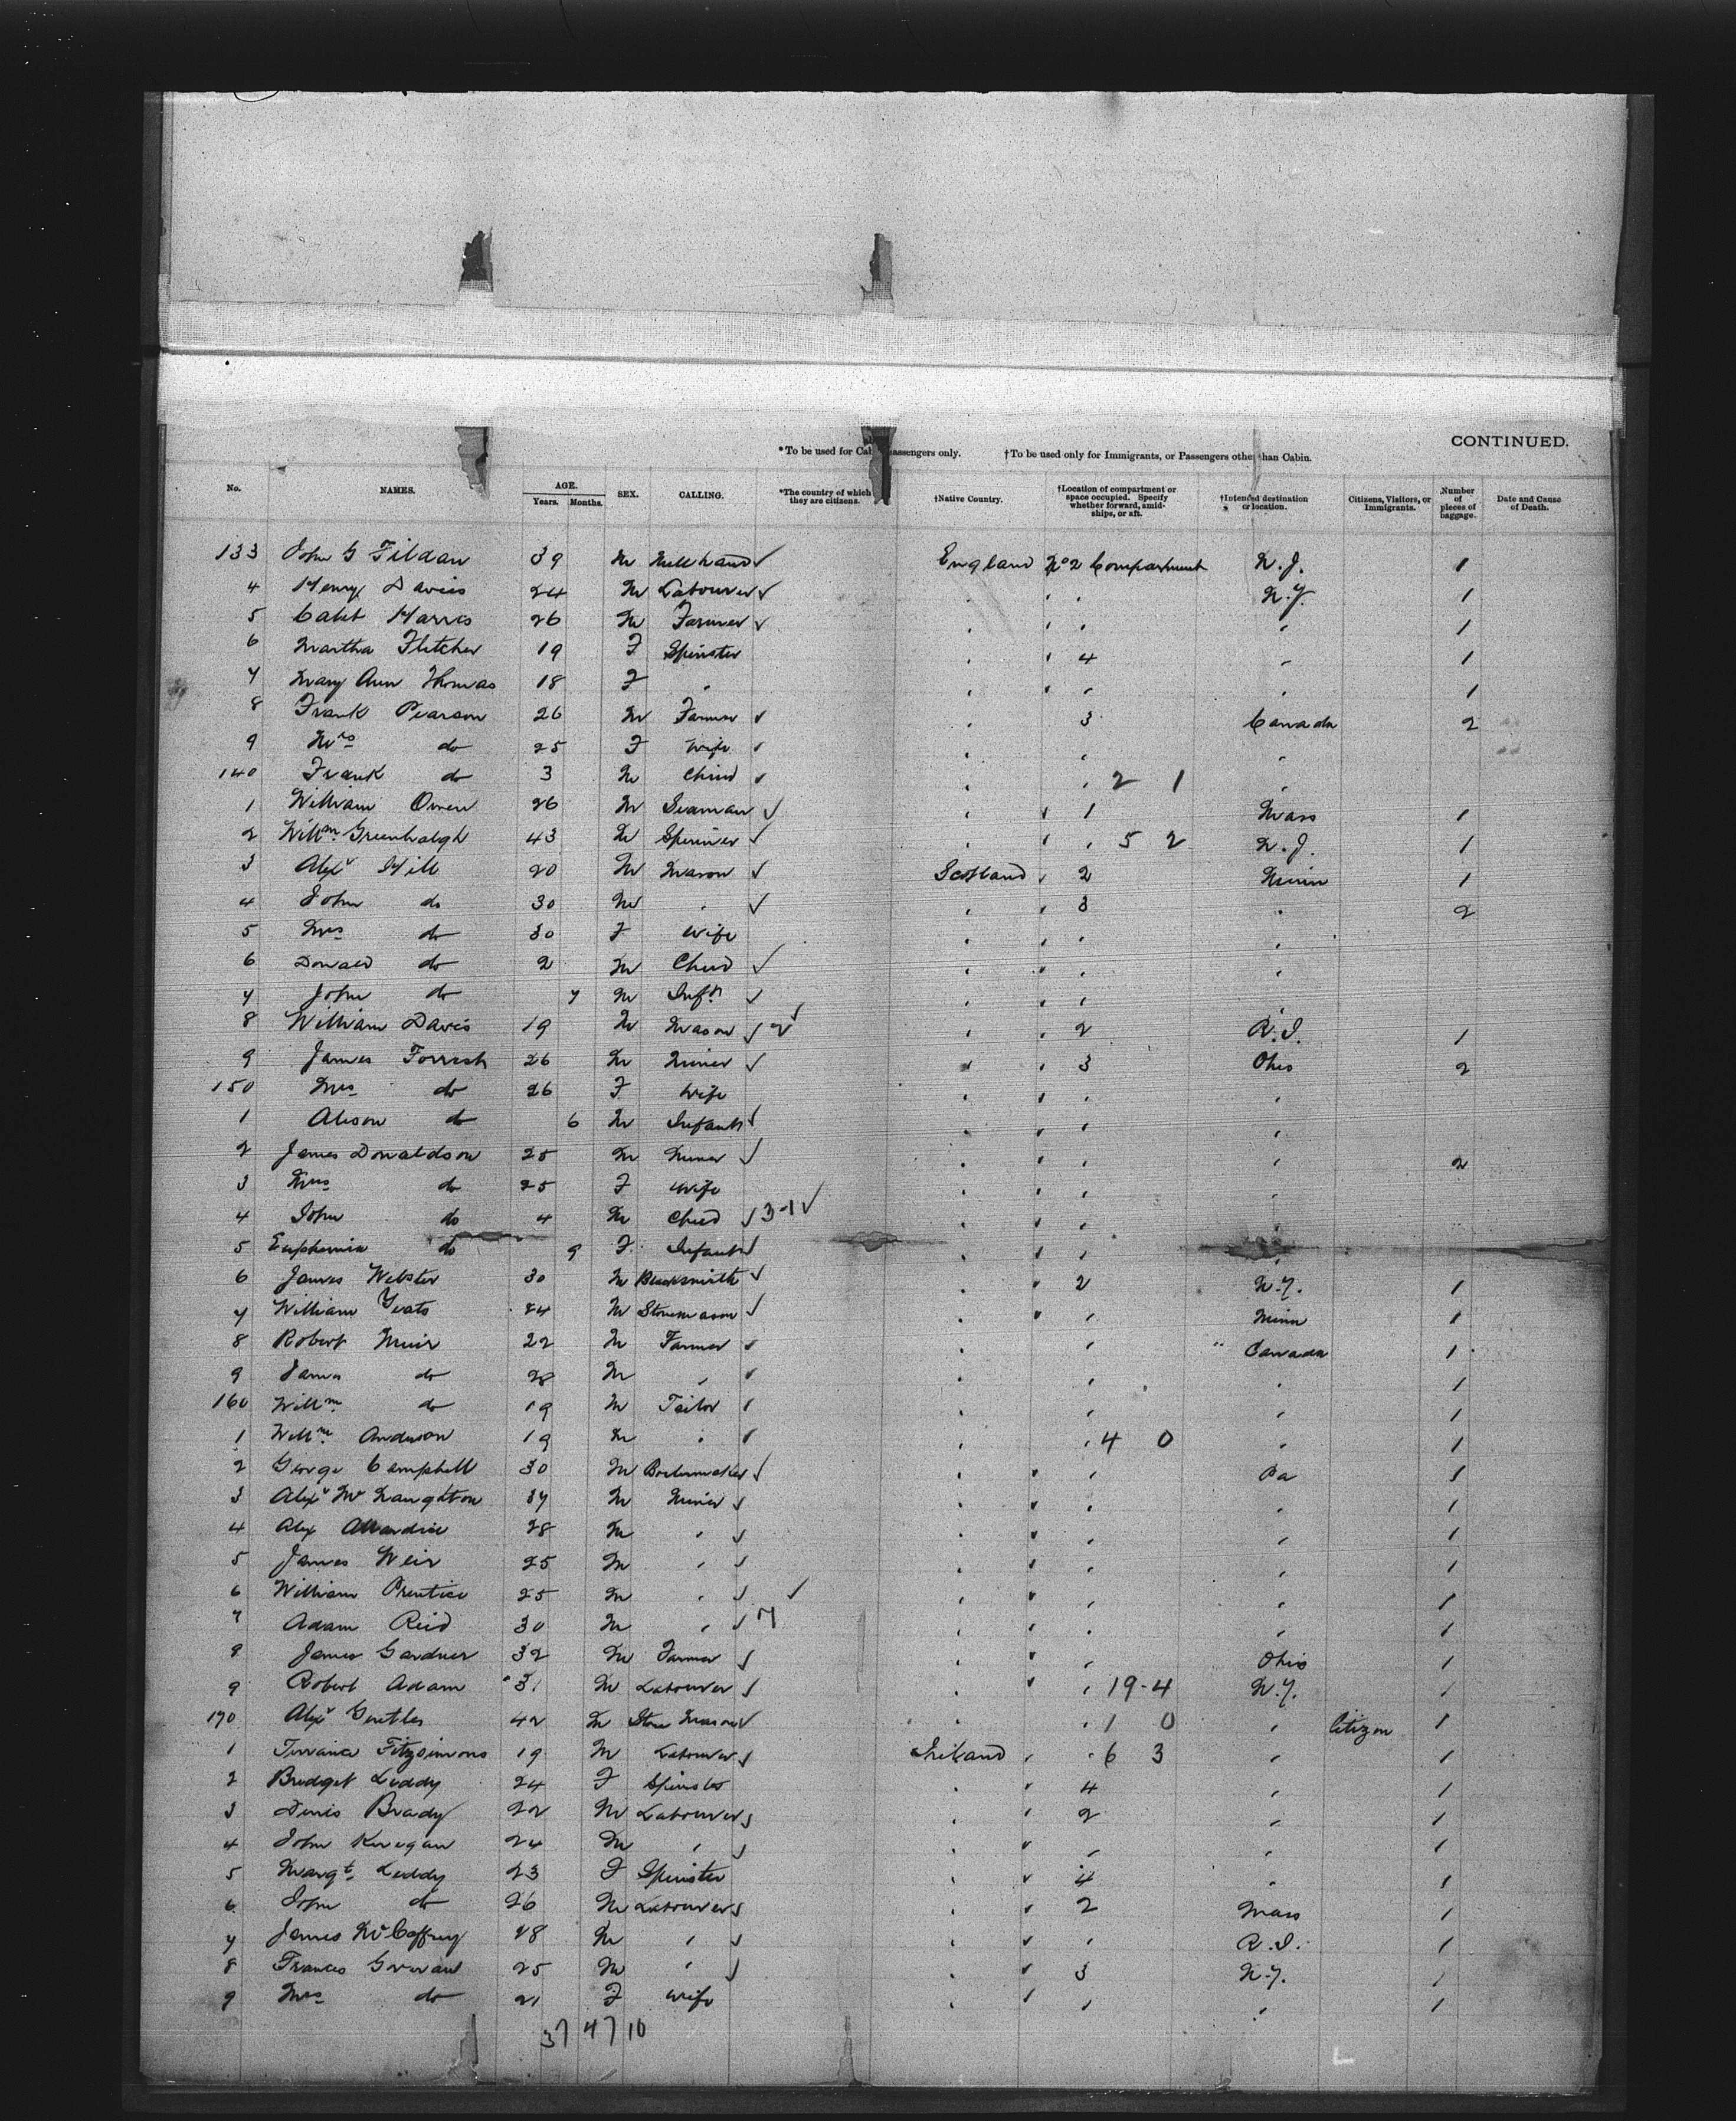 CONTINUED.
*To be used for Cab passengers only. †To be used only for Immigrants, or Passengers other than Cabin.
No. NAMES. AGE. Years. Months. SEX. CALLING. *The country of which they are citizens. †Native Country. †Location of compartment or space occupied. Specify whether forward, amid-ships, or aft. †Intended destination or location. Citizens, Visitors, or Immigrants. Number of pieces of baggage. Date and Cause of Death.
133 John G Fildan 39 M Millhand ✓ England No 2 Compartment N.J. 1
4 Henry Davies 24 M Labourer ✓ " " " N.Y. 1
5 Caleb Harris 26 M Farmer ✓ " " " " 1
6 Martha Fletcher 19 F Spinster " " 4 " 1
7 Mary Ann Thomas 18 F " " " " " 1
8 Frank Pearson 26 M Farmer ✓ " 3 Canada 2
9 Mrs do 25 F Wife ✓ " " "
140 Frank do 3 M Child ✓ " " 2 1 "
1 William Owen 26 M Seaman ✓ " " 1 Mass 1
2 Willm Greenhalgh 43 M Spinner ✓ " " " 5 2 N.J. 1
3 Alexr Hill 20 M Mason ✓ Scotland " 2 Minn 1
4 John do 30 M " ✓ " " 3 " 2
5 Mrs do 30 F Wife " " " "
6 Donald do 2 M Child ✓ " " " "
7 John do 7 M Inft ✓ " " " "
8 William Davis 19 M Mason ✓ 2 ✓ " " 2 R.I. 1
9 James Forrest 26 M Miner ✓ " " 3 Ohio 2
150 Mrs do 26 F Wife " " " "
1 Alison do 6 M Infant ✓ " " " "
2 James Donaldson 25 M Miner ✓ " " " " 2
3 Mrs do 25 F Wife " " " "
4 John do 4 M Child ✓ 3-1 ✓ " " " "
5 Euphemia do 9 F Infant ✓ " " " "
6 James Webster 30 M Blacksmith ✓ " " 2 N.Y. 1
7 William Yeats 24 M Stonemason ✓ " " " Minn 1
8 Robert Muir 22 M Farmer ✓ " " " Canada 1
9 James do 28 M " ✓ " " " 1
160 Willm do 19 M Tailor ✓ " " " 1
1 Willm Anderson 19 M " ✓ " " 4 0 " 1
2 George Campbell 30 M Boilermaker ✓ " " " Pa 1
3 Alexr McNaughton 37 M Miner ✓ " " " " 1
4 Alex Allardice 28 M " ✓ " " " " 1
5 James Weir 25 M " ✓ " " " " 1
6 William Prentice 25 M " ✓ ✓ " " " " 1
7 Adam Reid 30 M " ✓ 7 " " " " 1
8 James Gardner 32 M Farmer ✓ " " " Ohio 1
9 Robert Adam 31 M Labourer ✓ " " " 19-4 N.Y. 1
170 Alexr Gentles 42 M Stone Mason ✓ " " 1 0 " Citizen 1
1 Terrance Fitzsimons 19 M Labourer ✓ Ireland " " 6 3 " 1
2 Bridget Leddy 24 F Spinster " " 4 " 1
3 Denis Brady 22 M Labourer ✓ " " 2 " 1
4 John Keegan 24 M " ✓ " " " " 1
5 Margt Leddy 23 F Spinster " " 4 " 1
6 John do 26 M Labourer ✓ " " 2 Mass 1
7 James McCaffrey 28 M " ✓ " " " R.I. 1
8 Frances 25 M " ✓ " " 3 N.Y. 1
9 Mrs do 21 F Wife " " " " 1
37 47 10